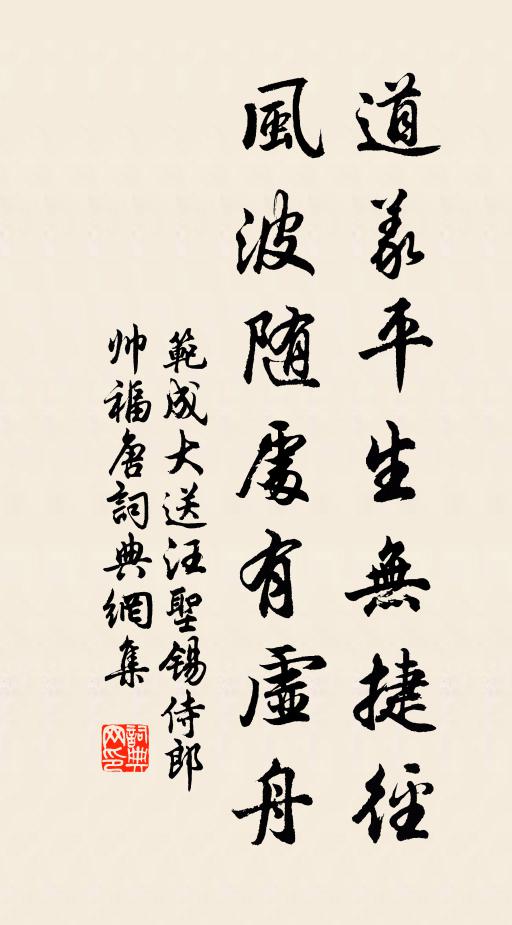 道義平生無捷徑
風波随處有虛舟
範成大送汪聖錫侍郎
帅福唐詞典網集
詞典网印